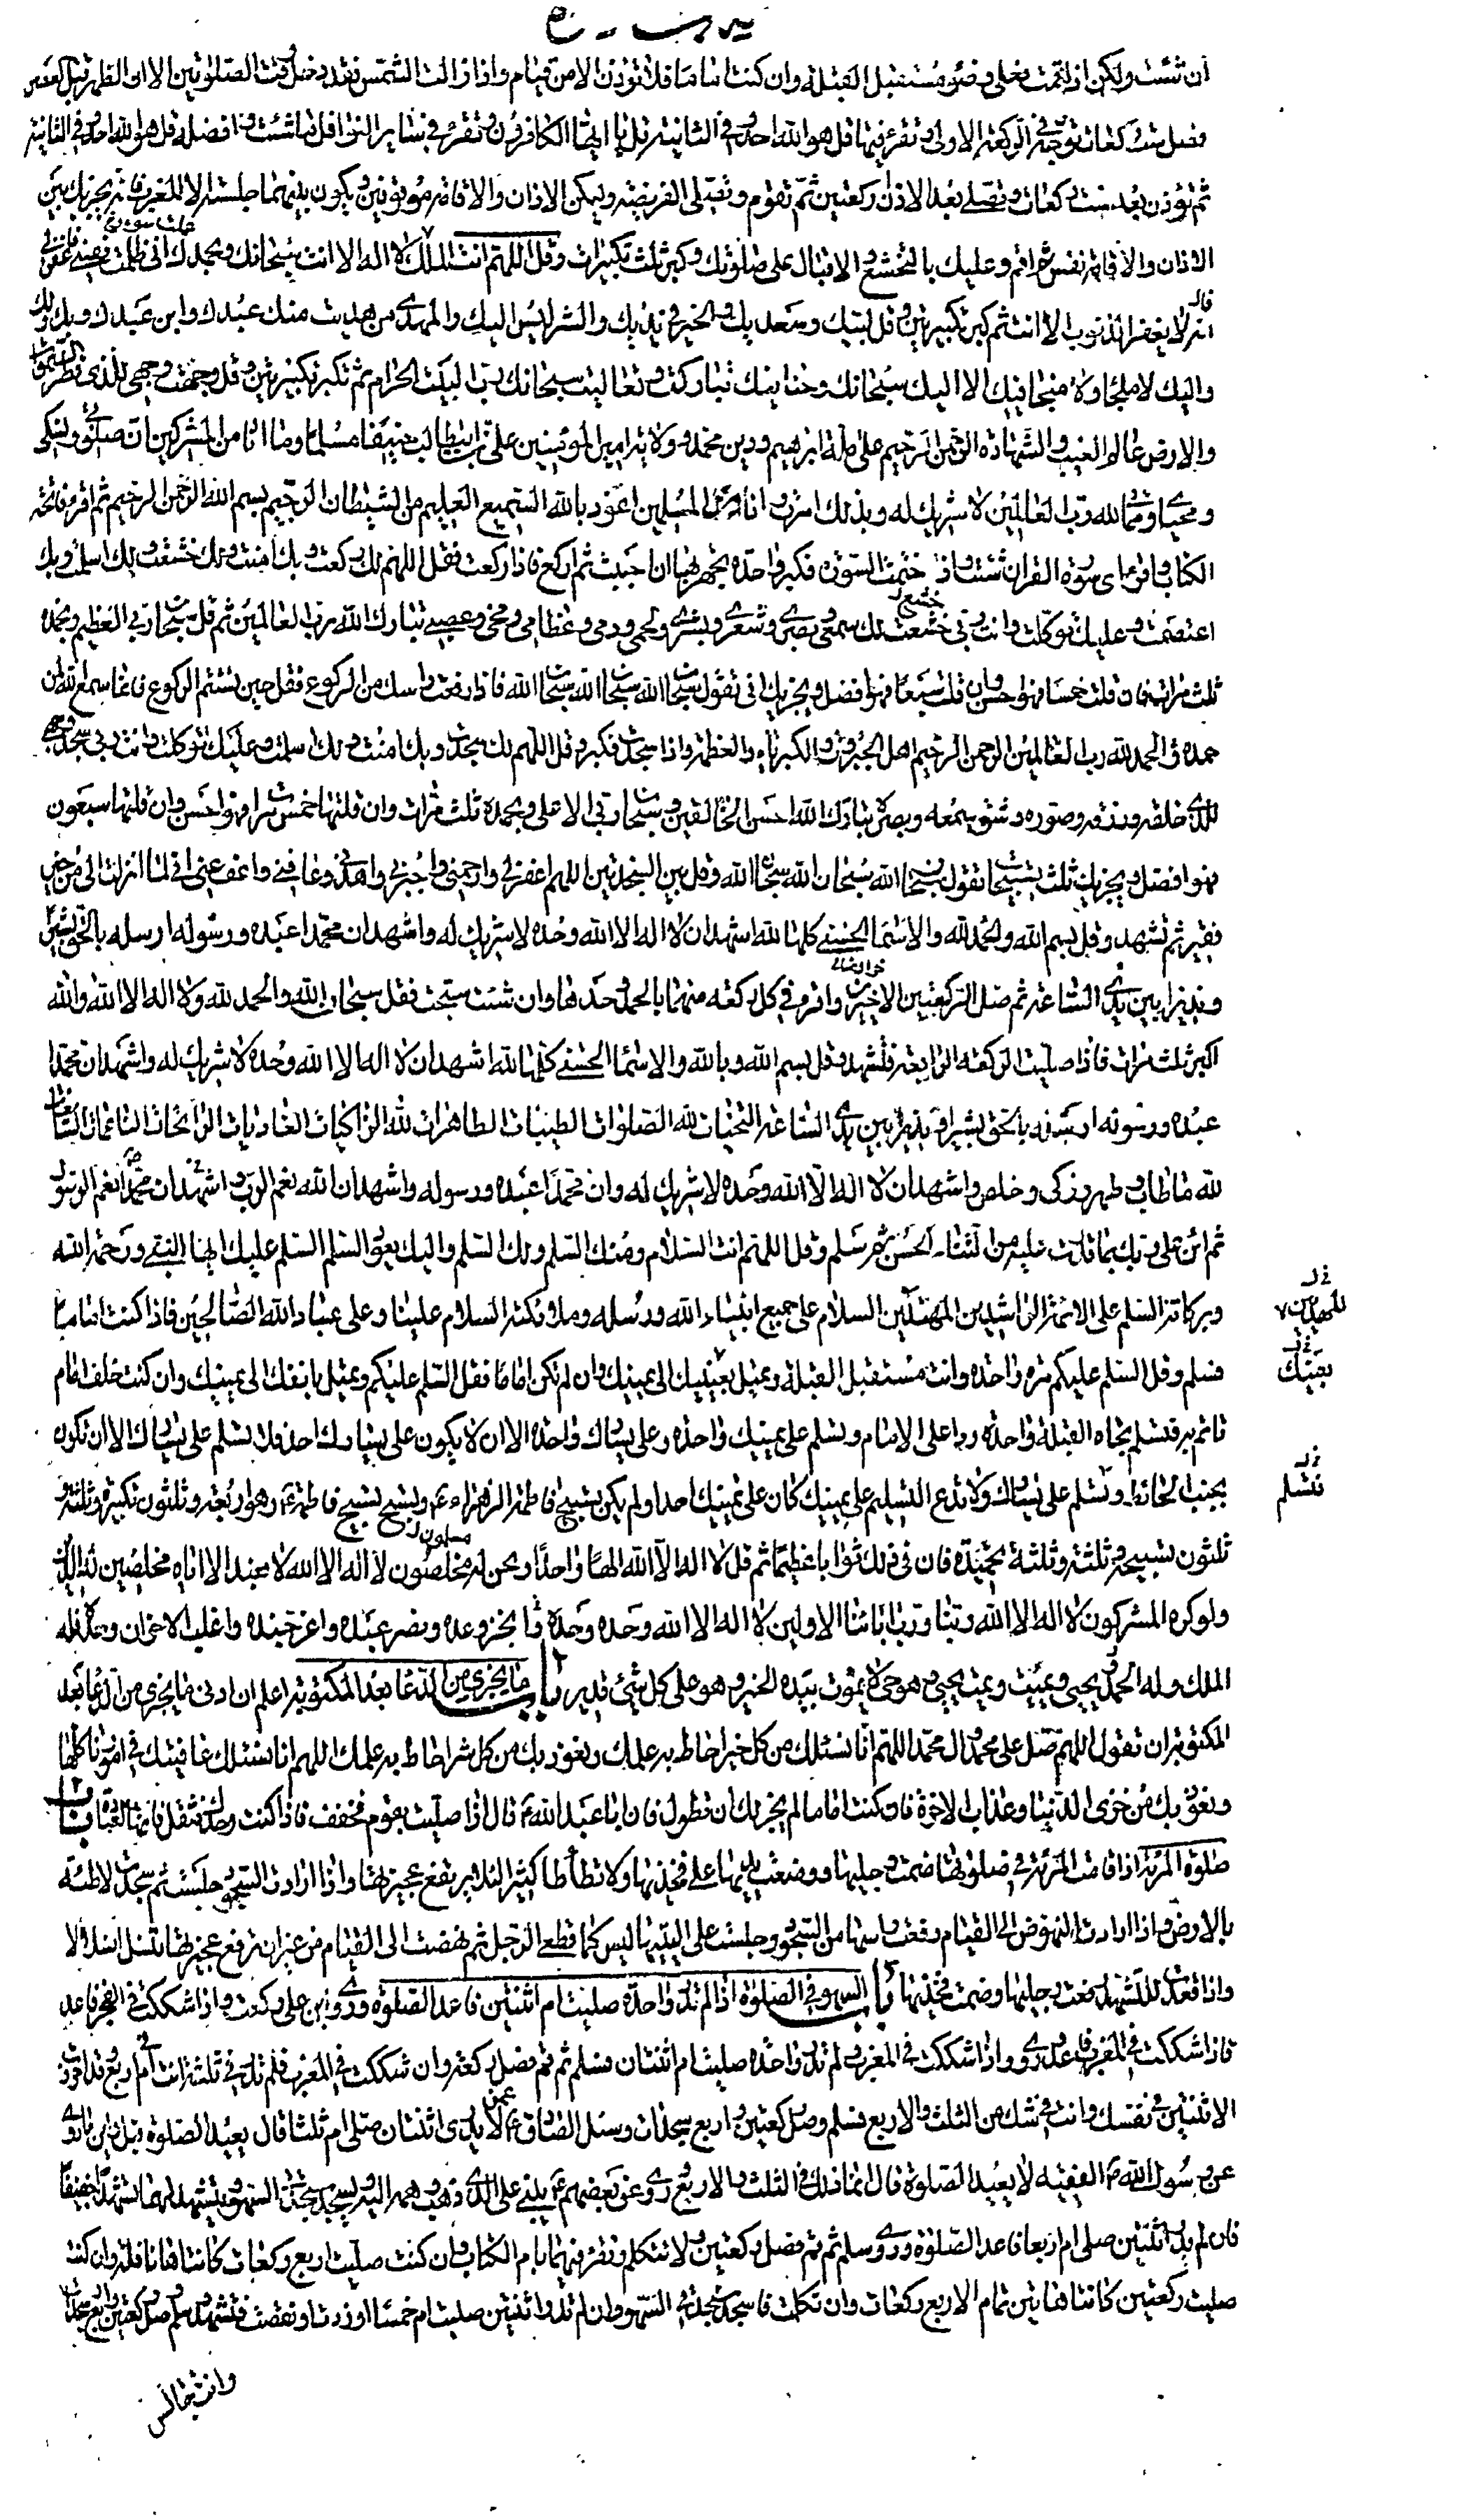 ان شئت ولكن اذا اقمت فعلى وضوء مستقبل القبلة وان كنت اماما فلا تؤذن الا من قيام واذا زالت الشمس فقد دخل وقت الصلوتين الا ان الظهر قبل العصر
فصل ست ركعات توجه فى الركعة الاولى وتقرء فيها قل هو الله احد وفى الثانية قل يا ايها الكافرون وتقرء فى سائر النوافل ما شئت وافضله قل هو الله احد فى الثانية
ثم تؤذن بعد ست ركعات وتصلى بعد الاذان ركعتين ثم تقوم وتصلى الفريضة وليكن الاذان والاقامة موقوتين ويكون بينهما جلسة الا المغرب فانه يجزيك بين
الاذان والاقامة نفس ثم اقم وعليك بالتخشع والاقبال على صلوتك وكبر ثلث تكبيرات وقل اللهم انت الملك لا اله الا انت سبحانك وبحمدك انى ظلمت نفسى فاغفر لى
انه لا يغفر الذنوب الا انت ثم كبر تكبيرتين وقل لبيك وسعديك والخير فى يديك والشر ليس اليك والمهدى من هديت منك عبدك وابن عبدك وبك ولك
واليك لا ملجا ولا منجا منك الا اليك سبحانك وحنانيك تباركت وتعاليت سبحانك رب البيت الحرام ثم تكبر تكبيرتين وقل وجهت وجهى للذى فطر السموات
والارض عالم الغيب والشهادة الرحمن الرحيم على ملة ابرهيم ودين محمد وولاية امير المؤمنين على بن ابيطالب حنيفا مسلما وما انا من المشركين ان صلوتى ونسكى
ومحياى ومماتى لله رب العالمين لا شريك له وبذلك امرت وانا من المسلمين اعوذ بالله السميع العليم من الشيطان الرجيم بسم الله الرحمن الرحيم ثم اقرء فاتحة
الكتاب واقرء اى سورة القران شئت واذا ختمت السورة فكبر واحدة تجهر بها ان احببت ثم اركع فاذا ركعت فقل اللهم لك ركعت وبك امنت ولك خشعت ولك اسلمت وبك
اعتصمت وعليك توكلت وانت ربى خشعت لك سمعى وبصرى وشعرى وبشرى ولحمى ودمى وعظامى ومخى وعصبى تبارك الله رب العالمين ثم قل سبحان ربى العظيم وبحمده
ثلث مرات فان قلت خمسا فهو احسن وان قلت سبعا فهو افضل ويجزيك ان تقول سبحان الله سبحان الله سبحان الله فاذا رفعت راسك من الركوع فقل حين تستتم الركوع قائما سمع الله لمن
حمده والحمد لله رب العالمين الرحمن الرحيم اهل الجبروت والكبرياء والعظمة واذا سجدت فكبر وقل اللهم لك سجدت وبك امنت ولك اسلمت وعليك توكلت وانت ربى سجد وجهى
للذى خلقه ورزقه وصوره وشق سمعه وبصره تبارك الله احسن الخالقين وسبحان ربى الاعلى وبحمده ثلث مرات وان قلتها خمس مرات فهو احسن وان قلتها سبعون
فهو افضل ويجزيك ثلث تسبيحات تقول سبحان الله سبحان الله سبحان الله وقل بين السجدتين اللهم اغفر لى وارحمنى واجبرنى واهدنى وعافنى واعف عنى انى لما انزلت الى من خير
فقير ثم تشهد وقل بسم الله والحمد لله والاسماء الحسنى كلها لله اشهد ان لا اله الا الله وحده لا شريك له واشهد ان محمدا عبده ورسوله ارسله بالحق بشيرا
ونذيرا بين يدى الساعة ثم صل الركعتين الاخيرتين واقرء فى كل ركعة منهما بالحمد وحدها وان شئت سبحت فقل سبحان الله والحمد لله ولا اله الا الله والله
اكبر ثلث مرات فاذا صليت الركعة الرابعة فتشهد وقل بسم الله وبالله والاسماء الحسنى كلها لله اشهد ان لا اله الا الله وحده لا شريك له واشهد ان محمدا
عبده ورسوله ارسله بالحق بشيرا ونذيرا بين يدى الساعة التحيات لله الصلوات الطيبات الطاهرات لله الزاكيات الغاديات الرائحات الناعمات السابغات
لله ما طاب وطهر وزكى وخلص واشهد ان لا اله الا الله وحده لا شريك له وان محمدا عبده ورسوله واشهد ان الله نعم الرب واشهد ان محمدا نعم الرسول
ثم اثن على ربك بما قدرت عليه من الثناء الحسن ثم سلم وقل اللهم انت السلام ومنك السلم ولك السلم واليك يعود السلم السلم عليك ايها النبى ورحمة الله
وبركاته السلم على الائمة الراشدين المهتدين السلام على جميع انبياء الله ورسله وملائكته السلام علينا وعلى عباد الله الصالحين فاذا كنت اماما
للمهديين
فسلم وقل السلم عليكم مرة واحدة وانت مستقبل القبلة وتميل بعينيك الى يمينك وان لم تكن اماما فقل السلم عليكم وتميل بانفك الى يمينك وان كنت خلف امام
بعينك
تاتم به فتسلم تجاه القبلة واحدة ردا على الامام وتسلم على يمينك واحدة وعلى يسارك واحدة الا ان لا يكون على يسارك احد فلا تسلم على يسارك الا ان تكون
بجنب الحائط وتسلم على يسارك ولا تدع التسليم على يمينك كان على يمينك احد او لم يكن تسبيح فاطمة الزهراء ع وتسبح تسبيح فاطمة ع وهو اربعة وثلثون تكبيرة وثلثة و
فتسلم
ثلثون تسبيحة وثلثة وثلثة تحميدة فان فى ذلك ثوابا عظيما ثم قل لا اله الا الله الها واحدا ونحن له مخلصون لا اله الا الله لا نعبد الا اياه مخلصين له الدين
ولو كره المشركون لا اله الا الله ربنا ورب ابائنا الاولين لا اله الا الله وحده وحده وحده انجز وعده ونصر عبده واعز جنده وغلب الاحزاب وحده فله
الملك وله الحمد يحيى ويميت ويميت ويحيى وهو حى لا يموت بيده الخير وهو على كل شئ قدير باب ما يجزى من الدعا بعد المكتوبة اعلم ان ادنى ما يجزى من الدعا بعد
المكتوبة ان تقول اللهم صل على محمد وال محمد اللهم انا نسئلك من كل خير احاط به علمك ونعوذ بك من كل شر احاط به علمك اللهم انا نسئلك عافيتك فى امورنا كلها
ونعوذ بك من خزى الدنيا وعذاب الاخرة فان كنت اماما لم يجز لك ان تطول فان ابا عبد الله ع قال اذا صليت بقوم فخفف فاذا كنت وحدك فثقل فانها العبادة باب
صلوة المرئة اذا قامت المرئة فى صلوتها ضمت رجليها ووضعت يديها على فخذيها ولا تطأطأ كثيرا لئلا يرتفع عجيزتها واذا ارادت السجود جلست ثم سجدت لاطئة
بالارض واذا ارادت النهوض الى القيام رفعت راسها من السجود وجلست على اليتيها ليس كما يقعى الرجل ثم نهضت الى القيام من غير ان ترفع عجيزتها تنسل انسلالا
واذا قعدت للتشهد رفعت رجليها وضمت فخذيها باب السهو فى الصلوة اذا لم تدر واحدة صليت ام اثنتين فاعد الصلوة وروى ابن على ركعت واذا شككت فى الفجر فاعد
فاذا شككت فى المغرب فاعد وروى واذا شككت فى المغرب ولم تدر واحدة صليت ام اثنتان فسلم ثم قم فصل ركعة وان شككت فى المغرب فلم تدر فى ثلثة انت ام اربع وقد احرزت
الاثنتين فى نفسك وانت فى شك من الثلث والاربع فسلم وصل ركعتين واربع سجدات وسئل الصادق ع عمن لا يدرى اثنتان صلى ام ثلثا قال يعيد الصلوة قيل فاين ما روى
عن رسول الله ص الفقيه لا يعيد الصلوة قال انما ذلك فى الثلث والاربع وروى عن بعضهم ع يبنى على الذى ذهب وهمه اليه ويسجد سجدتى السهو ويتشهد لهما تشهدا خفيفا
فان لم يدر اثنتين صلى ام اربعا فاعد الصلوة وروى سلم ثم قم فصل ركعتين ولا تتكلم وتقرء فيهما بام الكتاب وان كنت صليت اربع ركعات كانتا هاتان نافلة وان كنت
صليت ركعتين كانتا هاتين تمام الاربع ركعات وان تكلمت فاسجد سجدتى السهو وان لم تدر اثنتين صليت ام خمسا او زدت او نقصت فتشهد وسلم وصل ركعتين واربع سجدات
وانت جالس